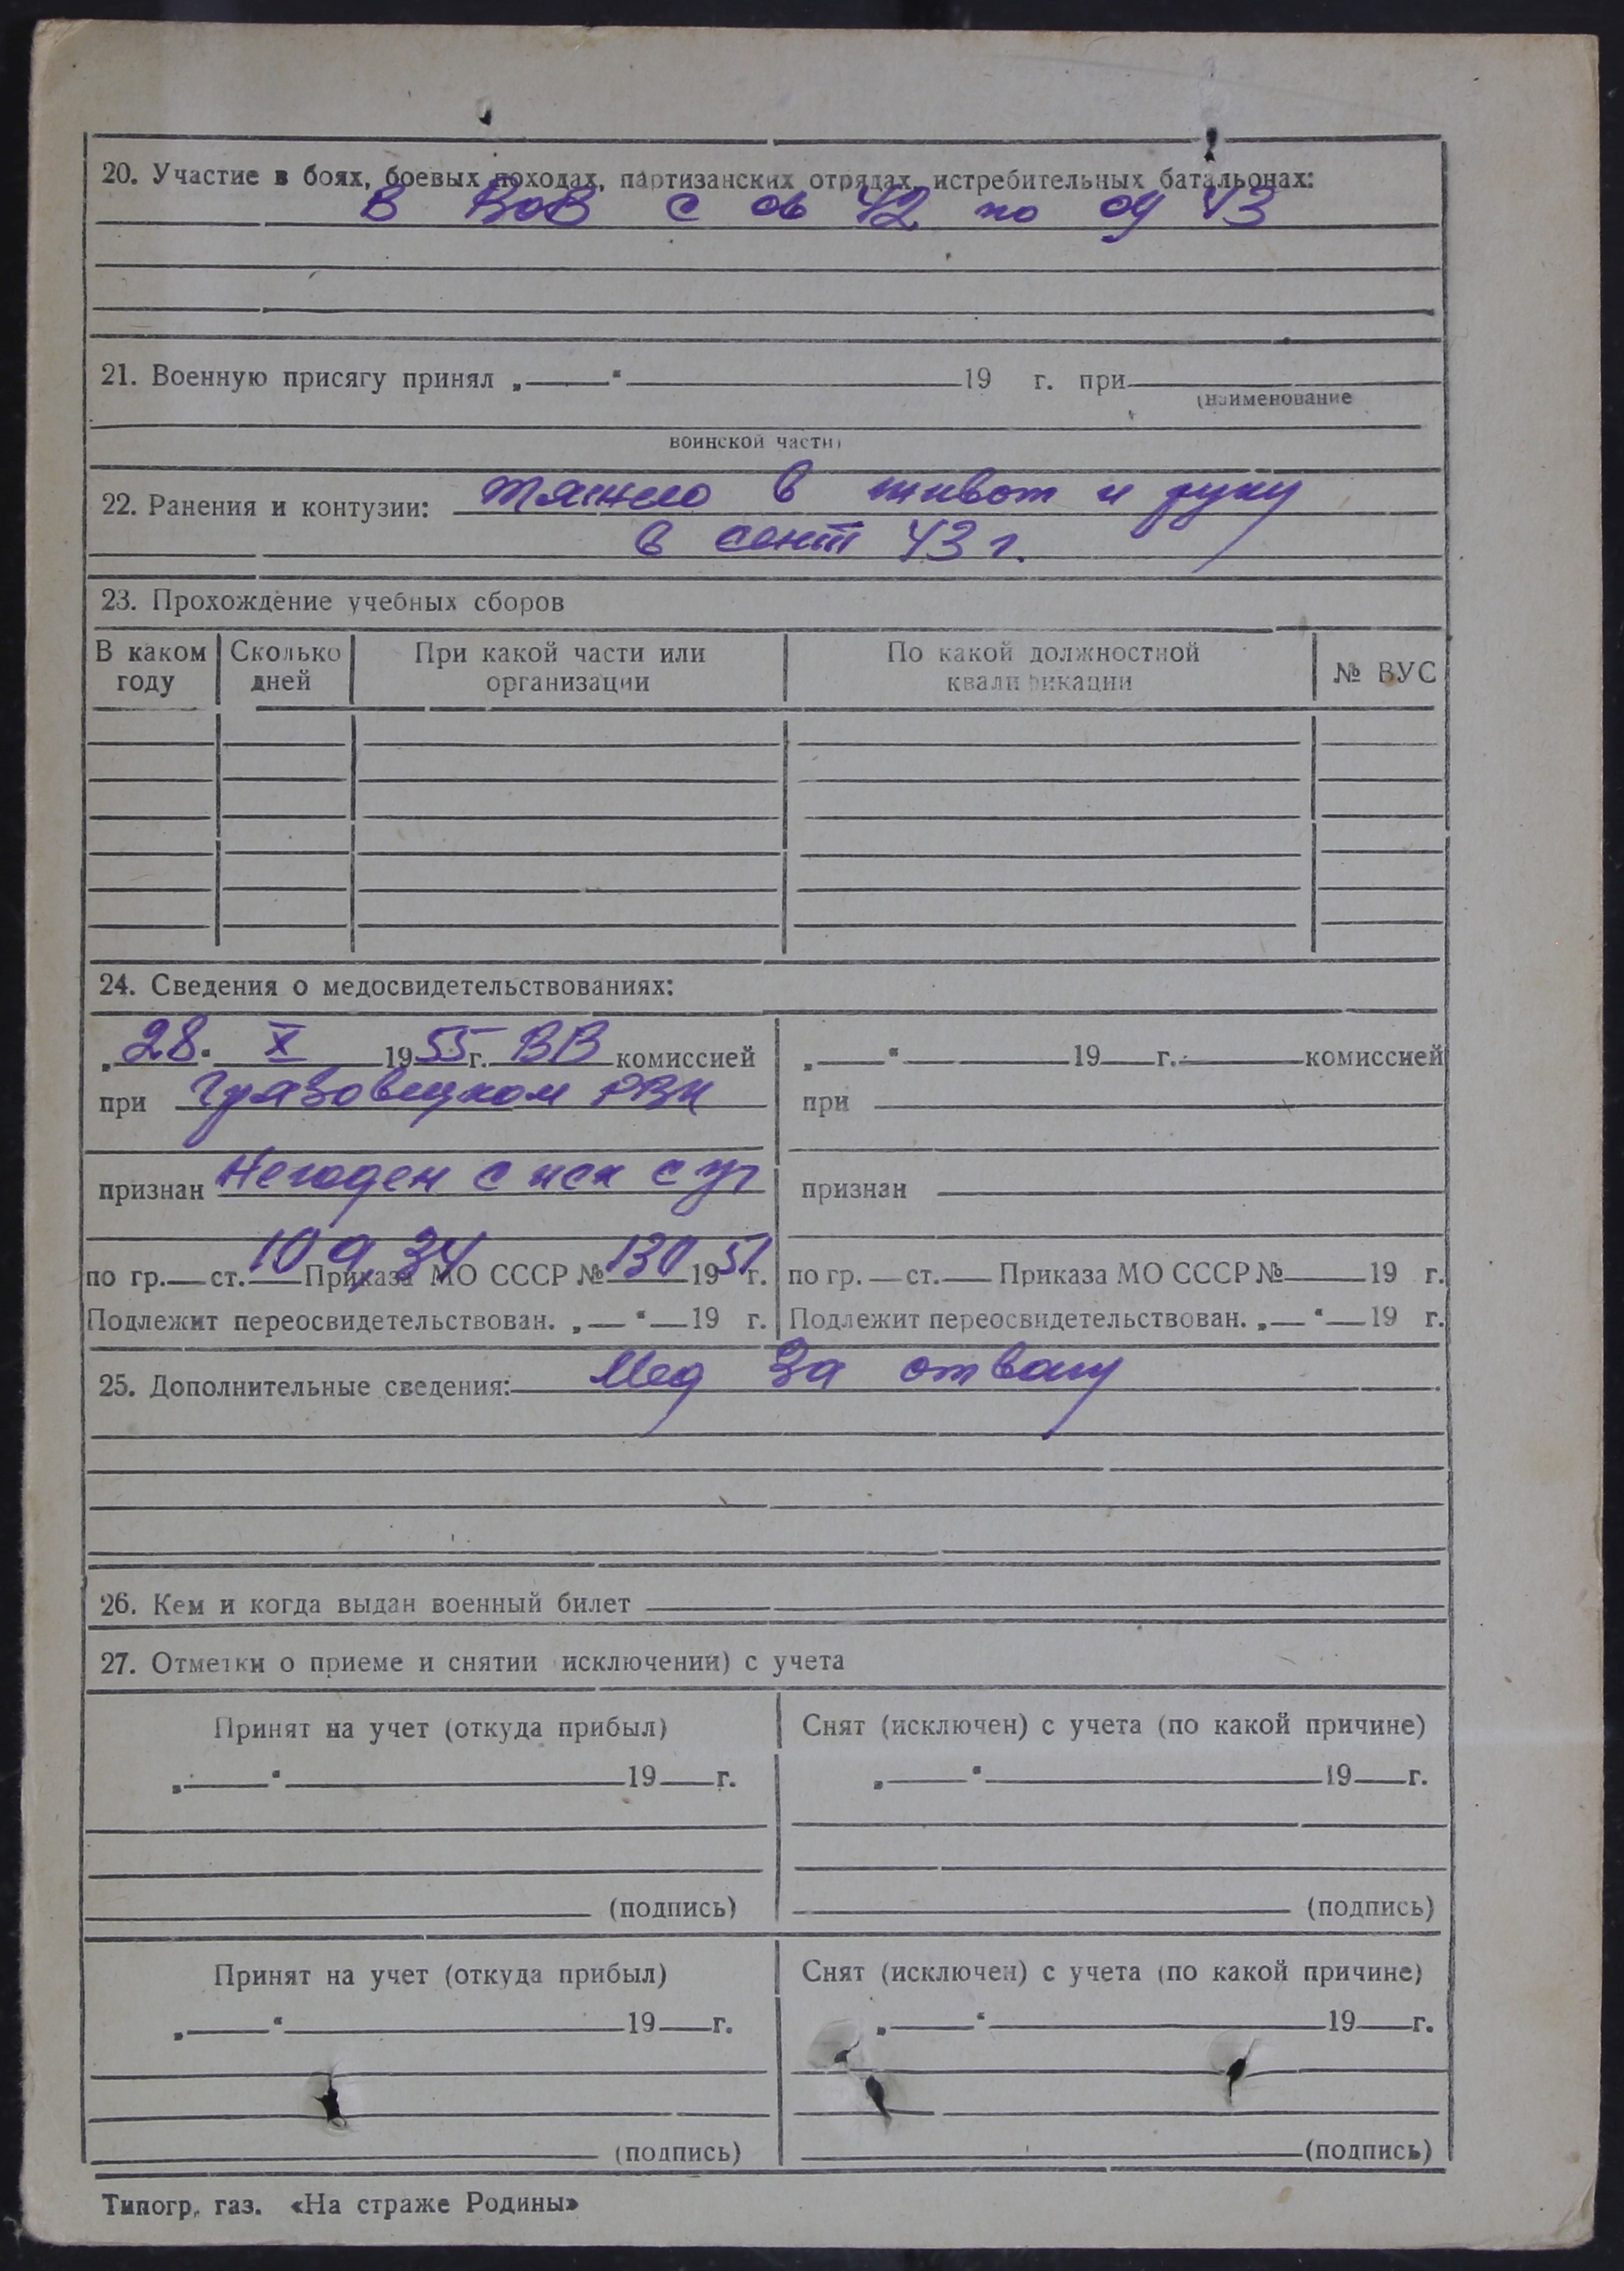 20. Участие в боях, боевых походах, партизанских отрядах, истребительных батальонах:
В ВОВ с 06 42 по 09 43
21. Военную присягу принял „ “ 19 г. при
(наименование
воинской части)
22. Ранения и контузии: тяжело в живот и руку
в сент 43 г.
23. Прохождение учебных сборов
В каком году Сколько дней При какой части или организации По какой должностной квалификации № ВУС
24. Сведения о медосвидетельствованиях:
„28“ X 1955 г. ВВ комиссией
при Грязовецком РВК
признан Негоден с иск с уч
по гр. ст. 10 9,34 Приказа МО СССР № 130 1951 г.
Подлежит переосвидетельствован. „ “ 19 г.
„ “ 19 г. комиссией
при
признан
по гр. ст. Приказа МО СССР № 19 г.
Подлежит переосвидетельствован. „ “ 19 г.
25. Дополнительные сведения: Мед За отвагу
26. Кем и когда выдан военный билет
27. Отметки о приеме и снятии исключении) с учета
Принят на учет (откуда прибыл)
„ “ 19 г.
(подпись)
Снят (исключен) с учета (по какой причине)
„ “ 19 г.
(подпись)
Принят на учет (откуда прибыл)
„ “ 19 г.
(подпись)
Снят (исключен) с учета (по какой причине)
„ “ 19 г.
(подпись)
Типогр. газ. «На страже Родины»